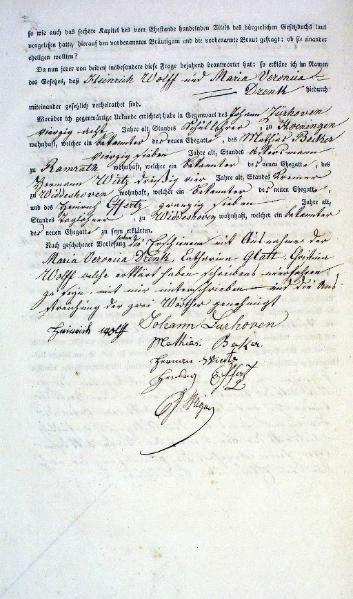 so wie auch das sechste Kapitel des vom Ehestande handelnden Titels des bürgerlichen Gesetzbuchs laut
vorgelesen hatte, hierauf den vorbenannten Bräutigam und die vorbenannte Braut gefragt: ob sie einander
ehelichen wollten?
Da nun jeder von beiden insbesondere diese Frage bejahend beantwortet hat: so erkläre ich im Namen
des Gesetzes, daß Heinrich Wolff und Maria Veronica
Drenk hierdurch
miteinander gesetzlich verheirathet sind.
Worüber ich gegenwärtige Urkunde errichtet habe in Gegenwart des Johann Jüxhoven
vierzig acht Jahre alt, Standes zu
wohnhaft, welcher ein bekannter der neuen Ehegatten, des Mathias
vierzig sieben Jahre alt, Standes Ackersmann
zu Ramrath wohnhaft, welcher ein bekannter der neuen Ehegatten, des
Hermann Wirtz dreißig vier Jahre alt, Standes
zu Widdeshoven wohnhaft, welcher ein bekannter des neuen Ehegatten
und des Heinrich zwanzig sieben Jahre alt,
Standes Taglöhner zu Widdeshoven wohnhaft, welcher ein bekannter
der neuen Ehegatten zu seyn erklärten.
Nach geschehener Vorlesung haben die Erschienenen mit Ausnahme der
Maria Veronica Drenk, Catharina Christina
Wolff welche erklärt haben schreibens unerfahren
zu sein mit mir unterschrieben und die Aus
streichung der zwei Wörther genehmigt
Heinrich Wolff
Johann Juxhoven
Mathias
Herman Wirtz